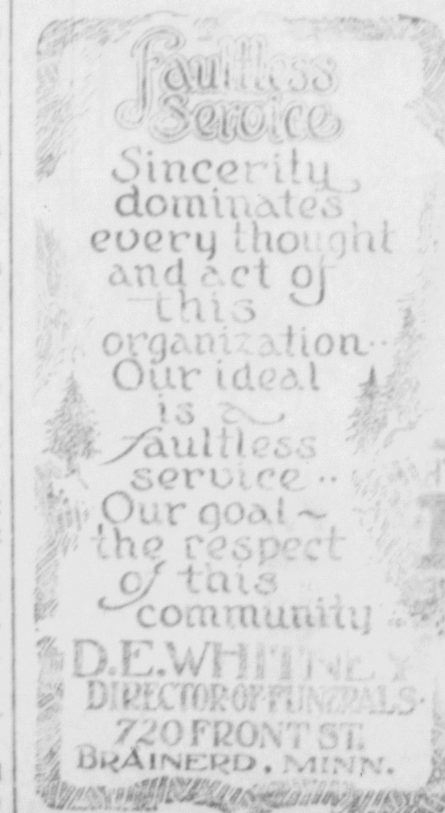 Faultless
Service
Sincerity
dominates
every thought
and act of
this
organization..
Our ideal
is a
faultless
service..
Our goal~
the respect
of this
community
D.E. WHITNEY
DIRECTOR OF FUNERALS.
720 FRONT ST.
BRAINERD, MINN.